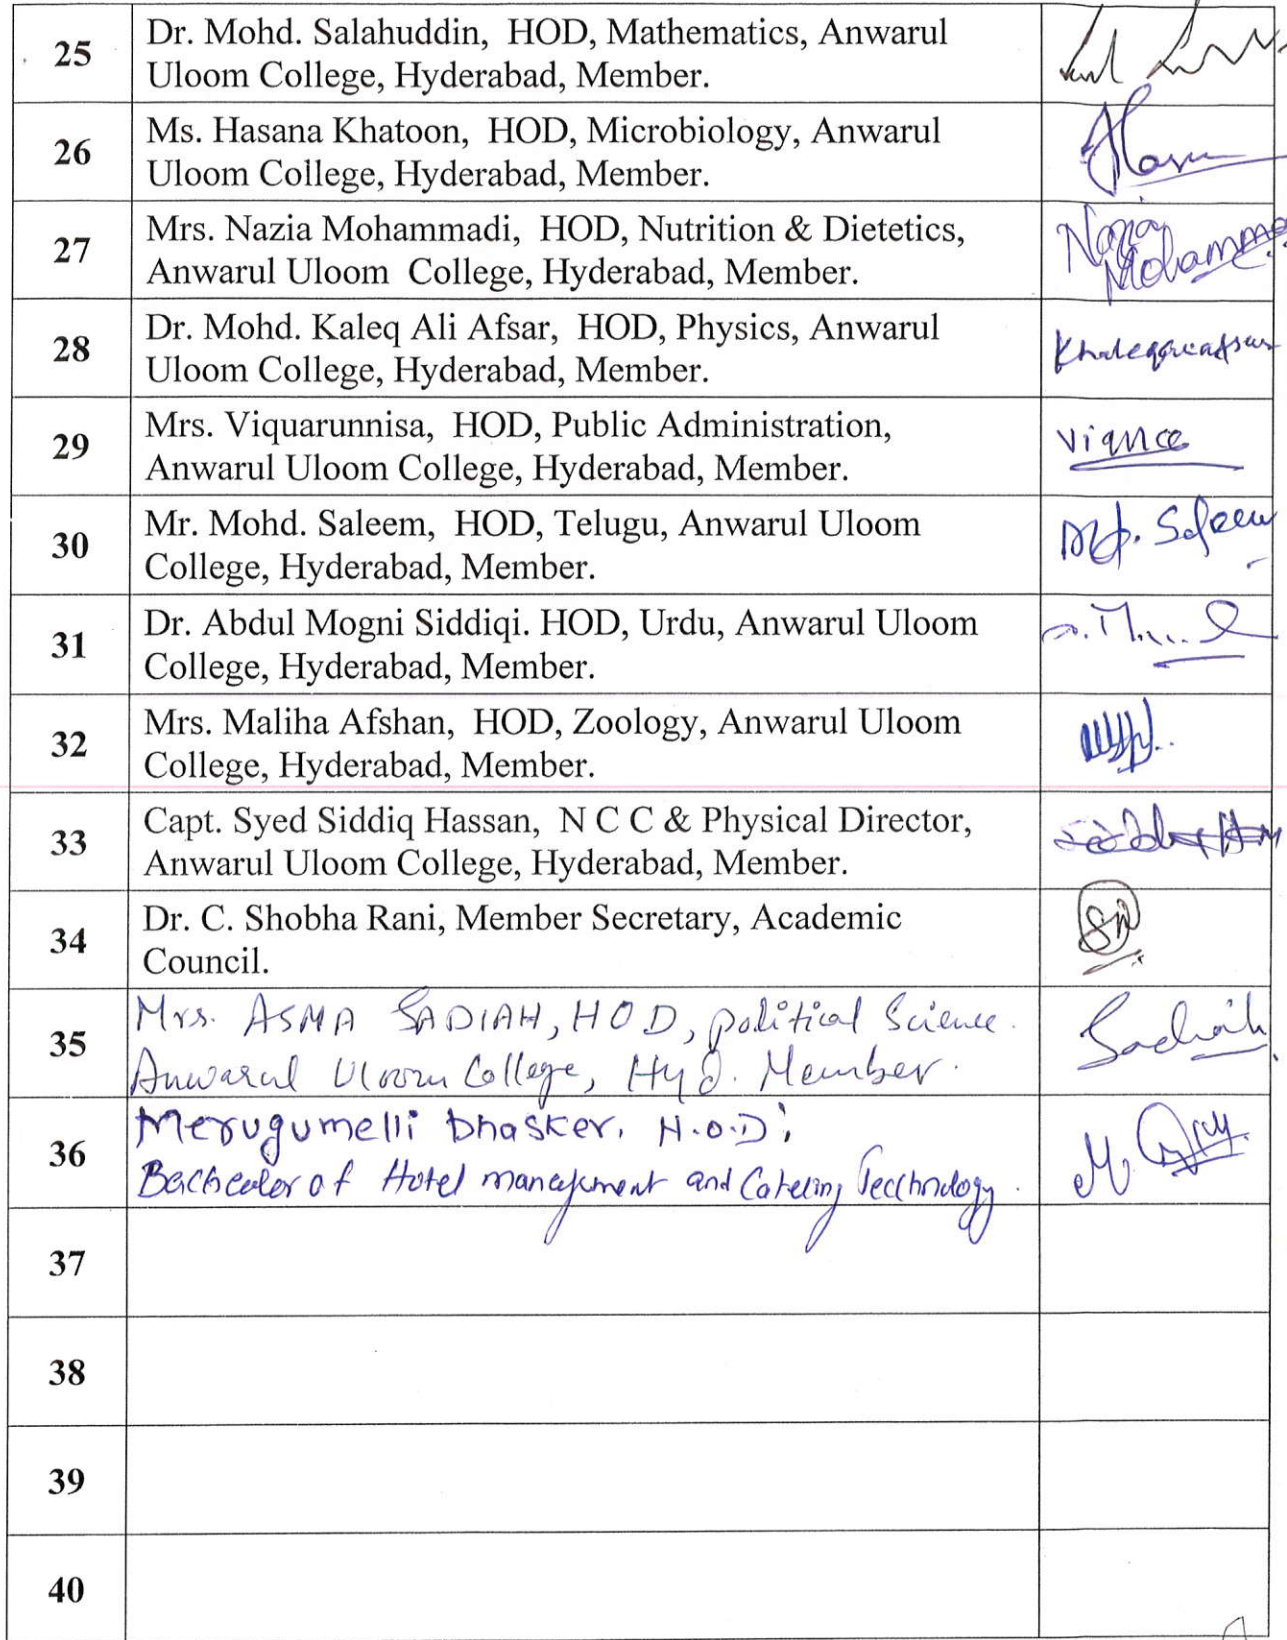 25
Dr. Mohd. Salahuddin, HOD, Mathematics, Anwarul
Uloom College, Hyderabad, Member.
26
Ms. Hasana Khatoon, HOD, Microbiology, Anwarul
Uloom College, Hyderabad, Member.
27
Mrs. Nazia Mohammadi, HOD, Nutrition & Dietetics,
Anwarul Uloom College, Hyderabad, Member.
Nazia
Mohamma
28
Dr. Mohd. Kaleq Ali Afsar, HOD, Physics, Anwarul
Uloom College, Hyderabad, Member.
29
Mrs. Viquarunnisa, HOD, Public Administration,
Anwarul Uloom College, Hyderabad, Member.
30
Mr. Mohd. Saleem, HOD, Telugu, Anwarul Uloom
College, Hyderabad, Member.
Md. Saleem
31
Dr. Abdul Mogni Siddiqi. HOD, Urdu, Anwarul Uloom
College, Hyderabad, Member.
32
Mrs. Maliha Afshan, HOD, Zoology, Anwarul Uloom
College, Hyderabad, Member.
33
Capt. Syed Siddiq Hassan, N C C & Physical Director,
Anwarul Uloom College, Hyderabad, Member.
34
Dr. C. Shobha Rani, Member Secretary, Academic
Council.
35
Mrs. ASMA SADIAH, HOD, political Science.
Anwarul Uloom College, Hyd. Member.
36
Merugumelli Bhasker. H.O.D;
Bachealor of Hotel management and Catering Tecchnology.
37
38
39
40